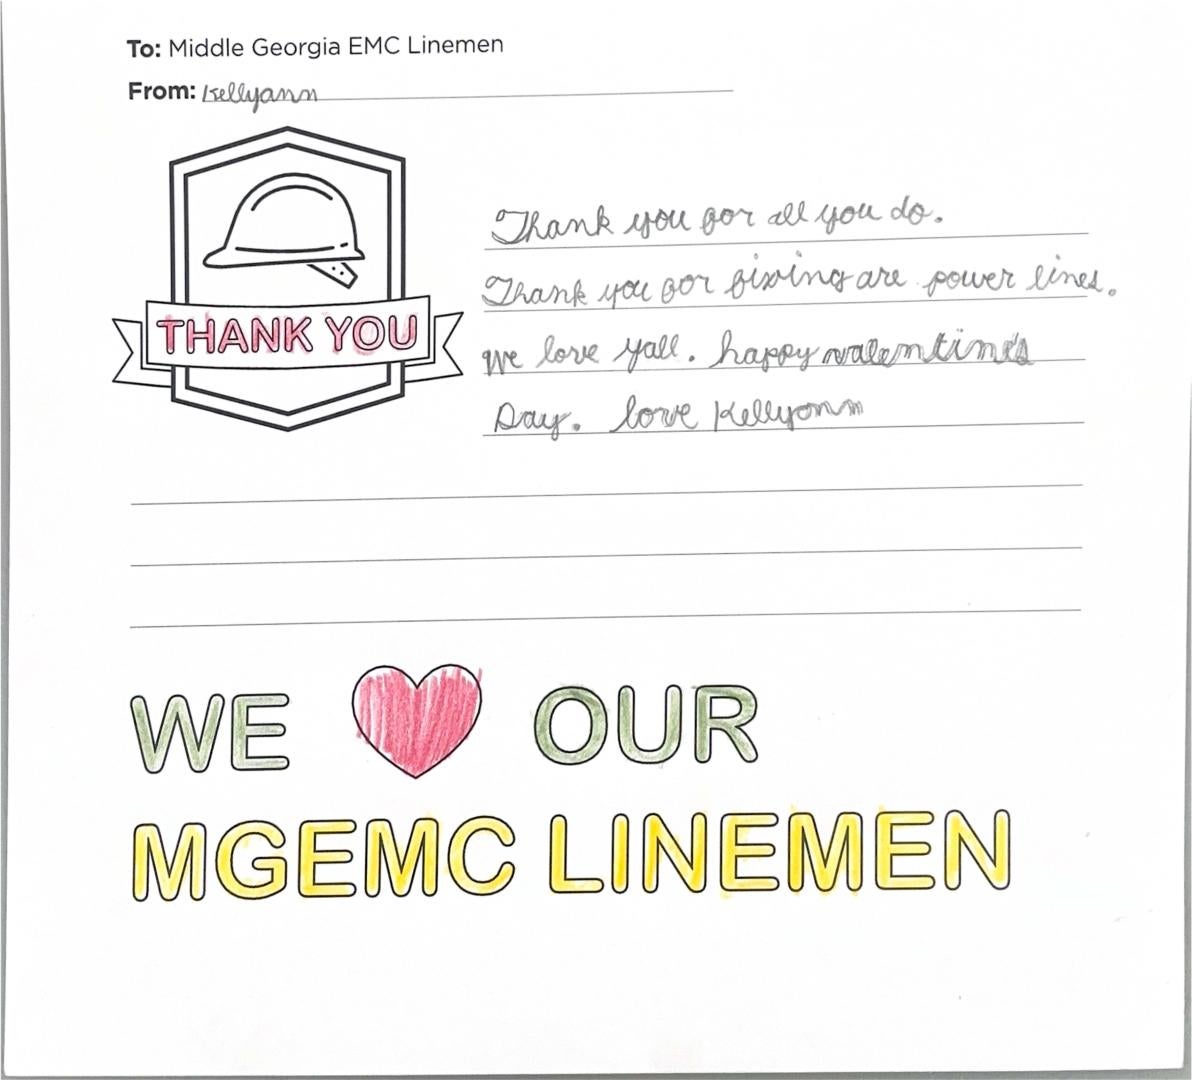 To: Middle Georgia EMC Linemen
From: Kellyann
THANK YOU
Thank you for all you do.
Thank you for fixing are power lines.
We love yall. happy valentines
Day. love Kellyann
WE OUR
MGEMC LINEMEN